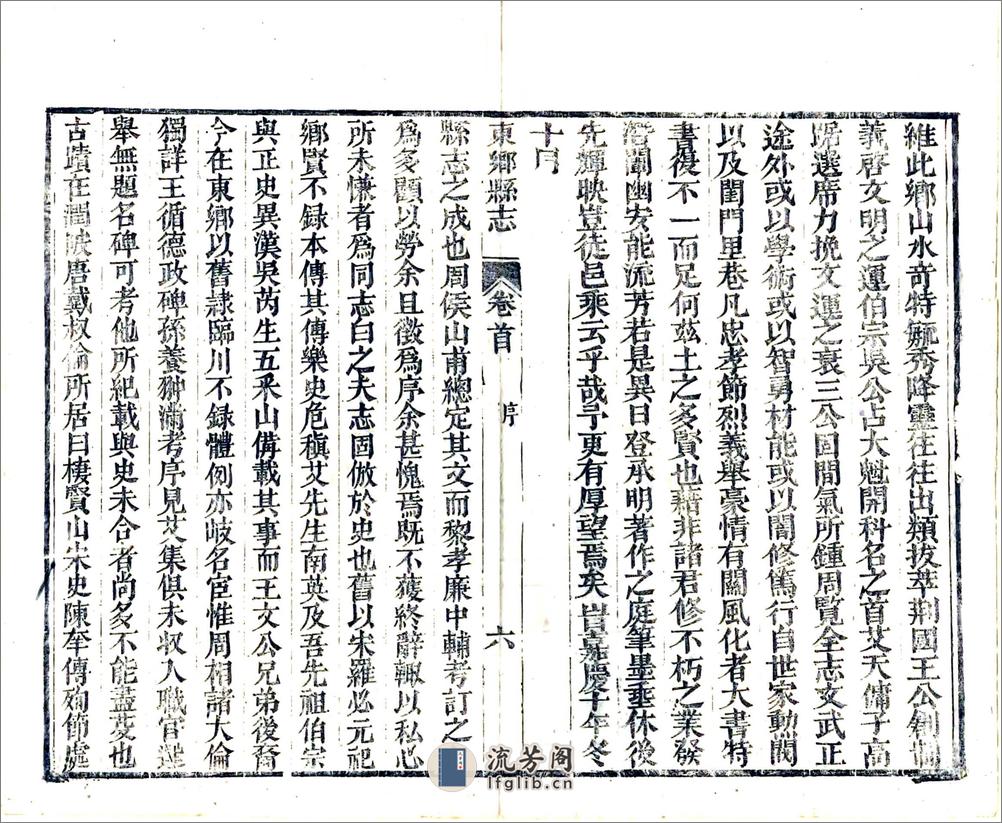 維此鄉山水奇特毓秀降靈往往出類拔萃荆國王公創制
義啓文明之運伯宗吳公占大魁開科名之首艾天傭子高
踞選席力挽文運之衰三公固間氣所鍾周覽全志文武正
途外或以學術或以智勇材能或以闇修篤行自世家勳閥
以及閨門里巷凡忠孝節烈義舉豪情有關風化者大書特
書復不一而足何玆土之多賢也藉非諸君修不朽之業發
潛闡幽安能流芳若是異日登承明著作之庭筆墨垂休後
先輝映豈徒邑乘云乎哉予更有厚望焉矣旹嘉慶十年冬
十月
東鄉縣志
卷首
序
六
縣志之成也周侯山甫總定其文而黎孝廉中輔考訂之
爲多顧以勞余且徵爲序余甚愧焉既不獲終辭輙以私心
所未慊者爲同志白之夫志固倣於史也舊以宋羅必元祀
鄉賢不録本傳其傳樂史危稹艾先生南英及吾先祖伯宗
與正史異漢吳芮生五釆山備載其事而王文公兄弟後裔
今在東鄉以舊隷臨川不録體例亦岐名宦惟周相諸大倫
獨詳王循德政碑孫養翀滿考序見艾集俱未収入職官選
舉無題名碑可考他所紀載與史未合者尚多不能盡芟也
古蹟在潤陂唐戴叔倫所居曰棲賢山宋史陳牽傳殉節處
流芳閣
lfglib.cn